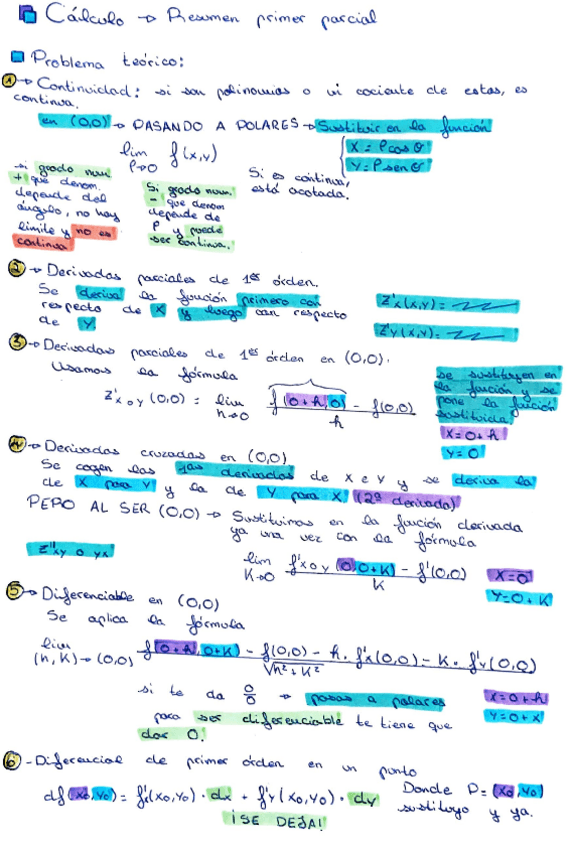 Cálculo → Resumen primer parcial
Problema teórico:
1 → Continuidad: si son polinomios o un cociente de estos, es
continua.
en (0,0) → PASANDO A POLARES → Sustituir en la función
lim f(x,y)
ρ→0
{ X = ρ cos θ
Y = ρ sen θ
→ si grado num.
+ que denom.
depende del
ángulo, no hay
límite y no es
continua
Si grado num.
- que denom
depende de
ρ y puede
ser continua.
Si es continua,
está acotada.
2 → Derivadas parciales de 1er órden.
Se deriva la función primero con
respecto de X y luego con respecto
de Y.
Z'x(x,y) =
Z'y(x,y) =
3 → Derivadas parciales de 1er órden en (0,0).
Usamos la fórmula
Z'x o y (0,0) = lim h→0 f(0+h,0) - f(0,0) / h
se sustituyen en
la función y se
pone la función
sustituida.
X=0+h
Y=0
4 → Derivadas cruzadas en (0,0)
Se cogen las 1as derivadas de X e Y y se deriva la
de X para Y y la de Y para X (2ª derivada)
PERO AL SER (0,0) → Sustituimos en la función derivada
ya una vez con la fórmula
Z''xy o yx
lim K→0 f'x o y (0,0+K) - f'(0,0) / K
X=0
Y=0+K
5 → Diferenciable en (0,0)
Se aplica la fórmula
lim (h,K)→(0,0) f(0+h,0+K) - f(0,0) - h·f'x(0,0) - K·f'y(0,0) / √h²+K²
si te da 0/0 → pasas a polares
para ser diferenciable te tiene que
dar 0!
X=0+h
Y=0+K
6 - Diferencial de primer órden en un punto
df(x₀,y₀) = f'x(x₀,y₀) · dx + f'y(x₀,y₀) · dy
¡SE DEJA!
Donde P=(x₀,y₀)
sustituyo y ya.